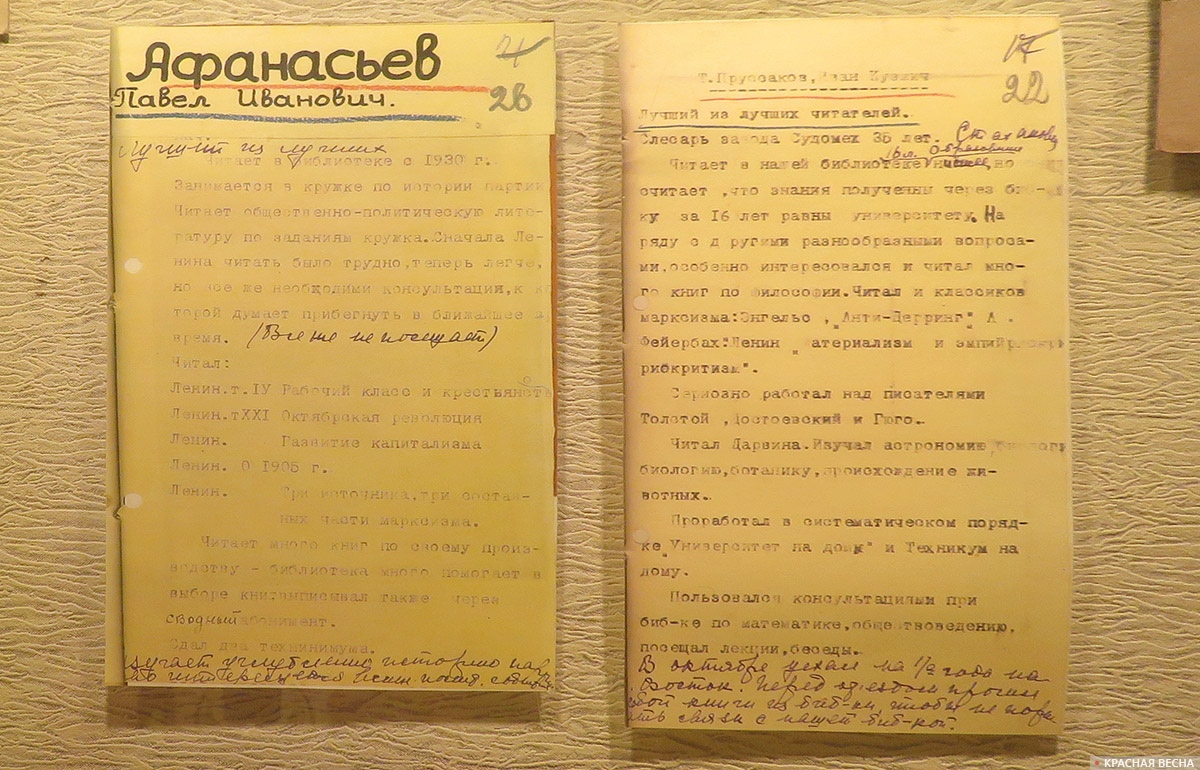 Афанасьев
Павел Иванович.
28
Лучший из лучших
Читает в библиотеке с 1930 г.
Занимается в кружке по истории партии
Читает общественно-политическую лите-
ратуру по заданиям кружка.Сначала Ле-
нина читать было трудно,теперь легче,
но все же необходими консультации,к
торой думает прибегнуть в ближайшее
время. (Все же не посещает)
Читал:
Ленин.т.IУ Рабочий класс и крестьянст
Ленин.тXXI Октябрская революция
Ленин. Газвитие капитализма
Ленин. О 1905 г..
Ленин. Три источника,три состав-
ных части марксизма.
Читает много книг по своему произ-
водству - библиотека много помогает в
выборе книг.выписывал также через
сводный абонимент.
Сдал два техминимума.
изучает углубленно историю пар
17
22
Т.Пруссаков,Иван Кузмич
Лучший из лучших читателей.
Слесарь завода Судомех 35 лет. Стаханов
образование
Читает в нашей библиотеке но
считает ,что знания полученны через биб-
ку за 16 лет равны университету. На
ряду с д ругими разнообразными вопроса-
ми,особенно интересовался и читал мно-
го книг по философии.Читал и классиков
марксизма:Энгельс ,"Анти-Дерринг" А .
Фейербах"Ленин " атериализм и эмпирио
риокритизм".
Сериозно работал над писателями
Толстой ,Достоевский и Гюго..
Читал Дарвина.Изучал астрономию,
биологию,ботанику,происхождение жи-
вотных..
Проработал в систематическом поряд-
ке"Университет на дому" и Техникум на
дому.
Пользовался консультациями при
биб-ке по математике,обществоведению,
посещал лекции,беседы..
В октябре уехал на 1/2 года на
Восток. Перед отездом просил
книги из биб-ки, чтобы не поры
ать связи с нашей биб-кой.
КРАСНАЯ ВЕСНА